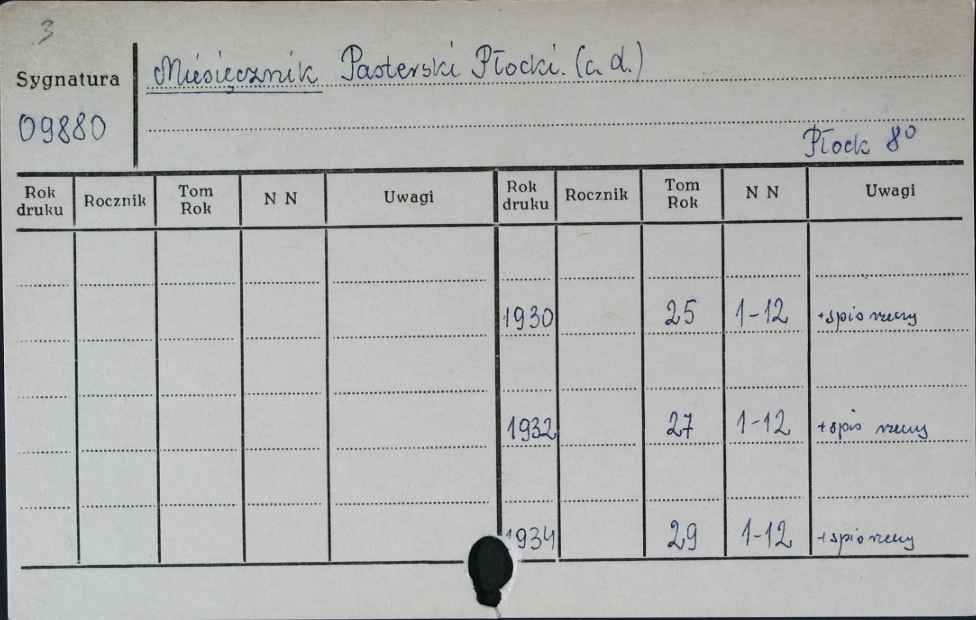 3
Sygnatura
Miesięcznik Pasterski Płocki. (c. d.)
09880
Płock 8⁰
Rok druku Rocznik Tom Rok N N Uwagi Rok druku Rocznik Tom Rok N N Uwagi
1930 25 1-12 +spis rzeczy
1932 27 1-12 +spis rzeczy
1934 29 1-12 +spis rzeczy